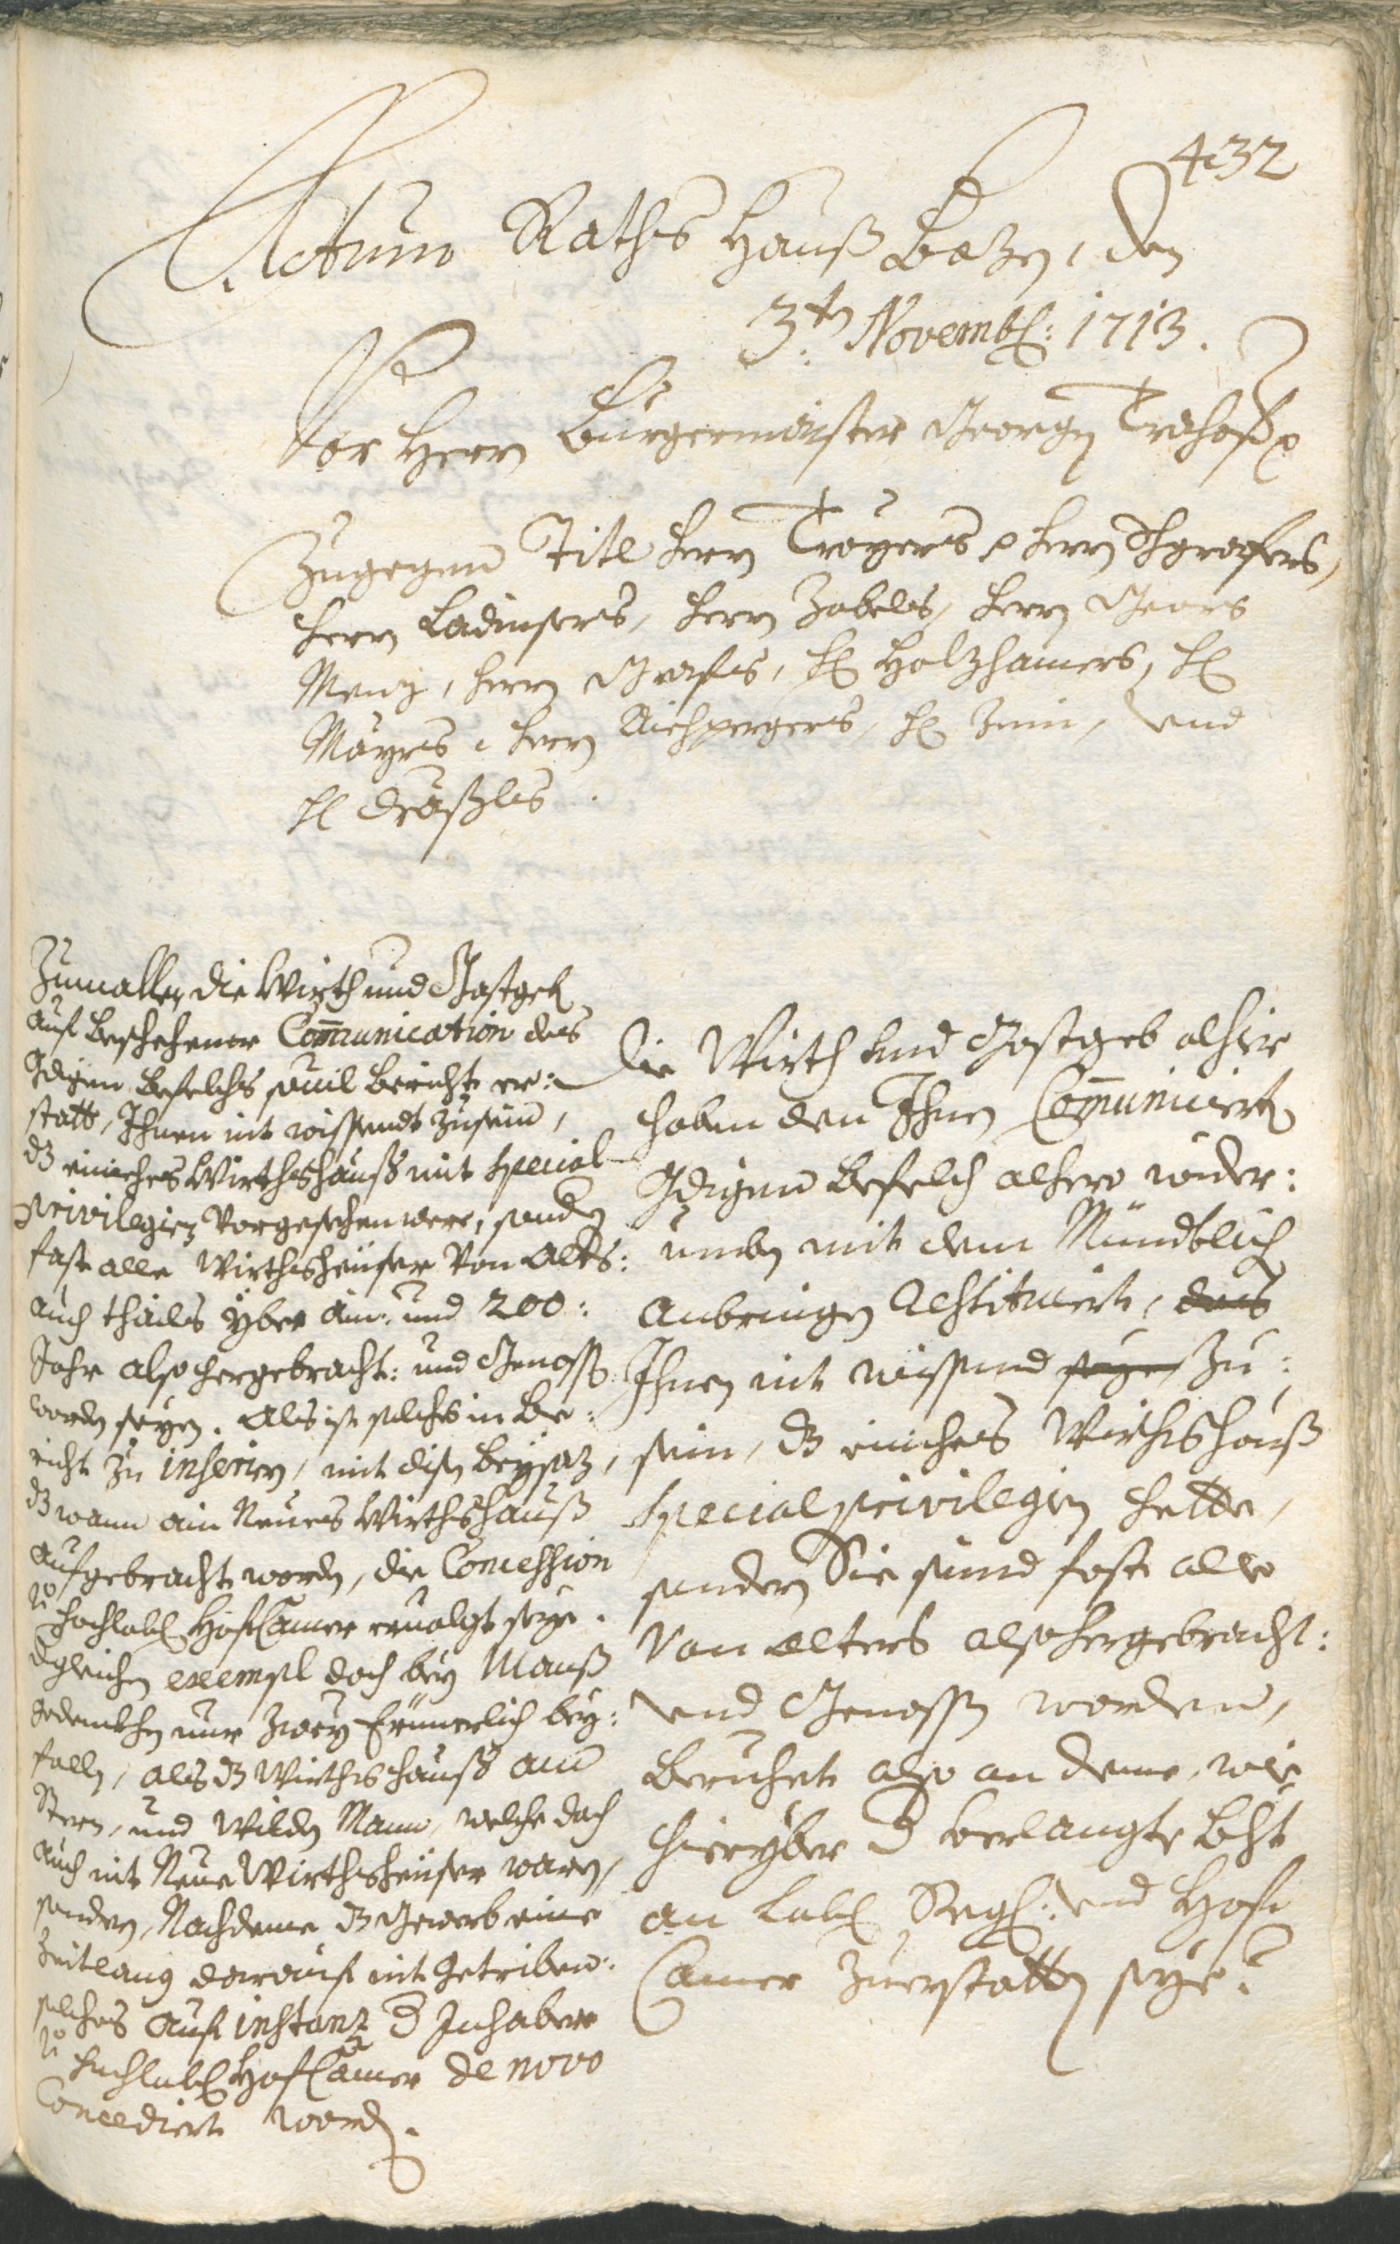 432
Actum Raths Hauß Bozen, den
3.tn Novemb: 1713.
Vor Herrn Burgermaister Georgen
Zugegen Titl Herrn Troyers, Herrn
Herrn Ladinsers, Herrn Zobels, Herrn
Menz, Herrn Grafs, H Holzhamers, H
Mayrs, Herrn Aichpergers, H und
H
Zumallen die Wirth und Gastgeb
auf beschehener Communication des
Gdigen Befelchs souil Bericht er:
statt, Ihnen nit wissendt zusein,
dz einiches Wirthshauß mit special
privilegien vorgesehen were, sonder
fast alle Wirthsheuser von Alts:
auch thails yber ain: und 200:
Jahr also hergebracht: und Genossen
worden seyen. Als ist solches in Be:
richt zu inserirn, mit disen beysaz,
dz wann ain Neues Wirthshauß
aufgebracht worden, die Concession
v Hochlobl HofCamer ervolgt seye.
dgleichen exempl doch bey Manß
gedenkhen nur zwey Erinnerlich bey:
fallen, als dz Wirthshauß am
Stern, und Wilden Mann, welche doch
auch nit Neue Wirthsheuser waren,
sonder, Nachdeme dz Gewerb eine
Zeitlang darauf nit getriben:
solches auf instanz d Inhaber
v Hochlobl HofCamer de novo
Concediert worden.
Die Wirth und Gastgeb alhier
haben den Ihnen Communicierten
Gdigen Befelch alhero wider:
umben mit dem Mündtlich
Anbringen Restituiert, das
Ihnen nit wissend seye zu:
sein, dz einiches Wirthshauß
special privilegien hette,
sonder Sie seind fast alle
Von Alters also hergebracht:
und Genossen worden,
Beruhet also an deme, wie
hieryber d verlangte Bht
an Lobl Reg: und Hof
Camer zuerstatten seye?